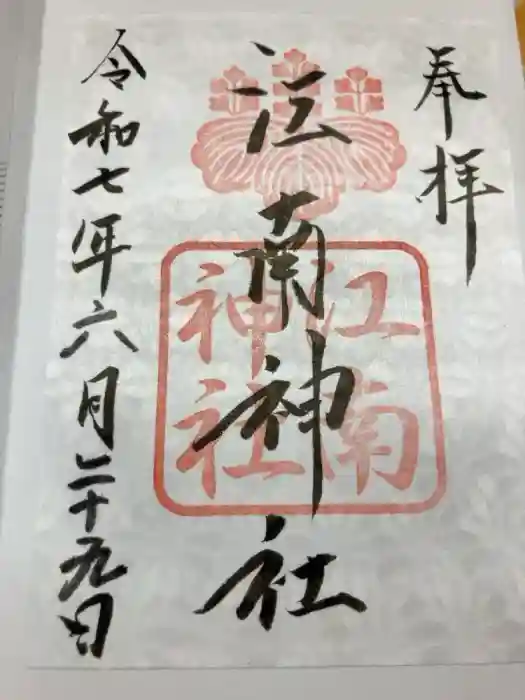 奉拝
江南神社
令和七年六月二十九日
江南
神社